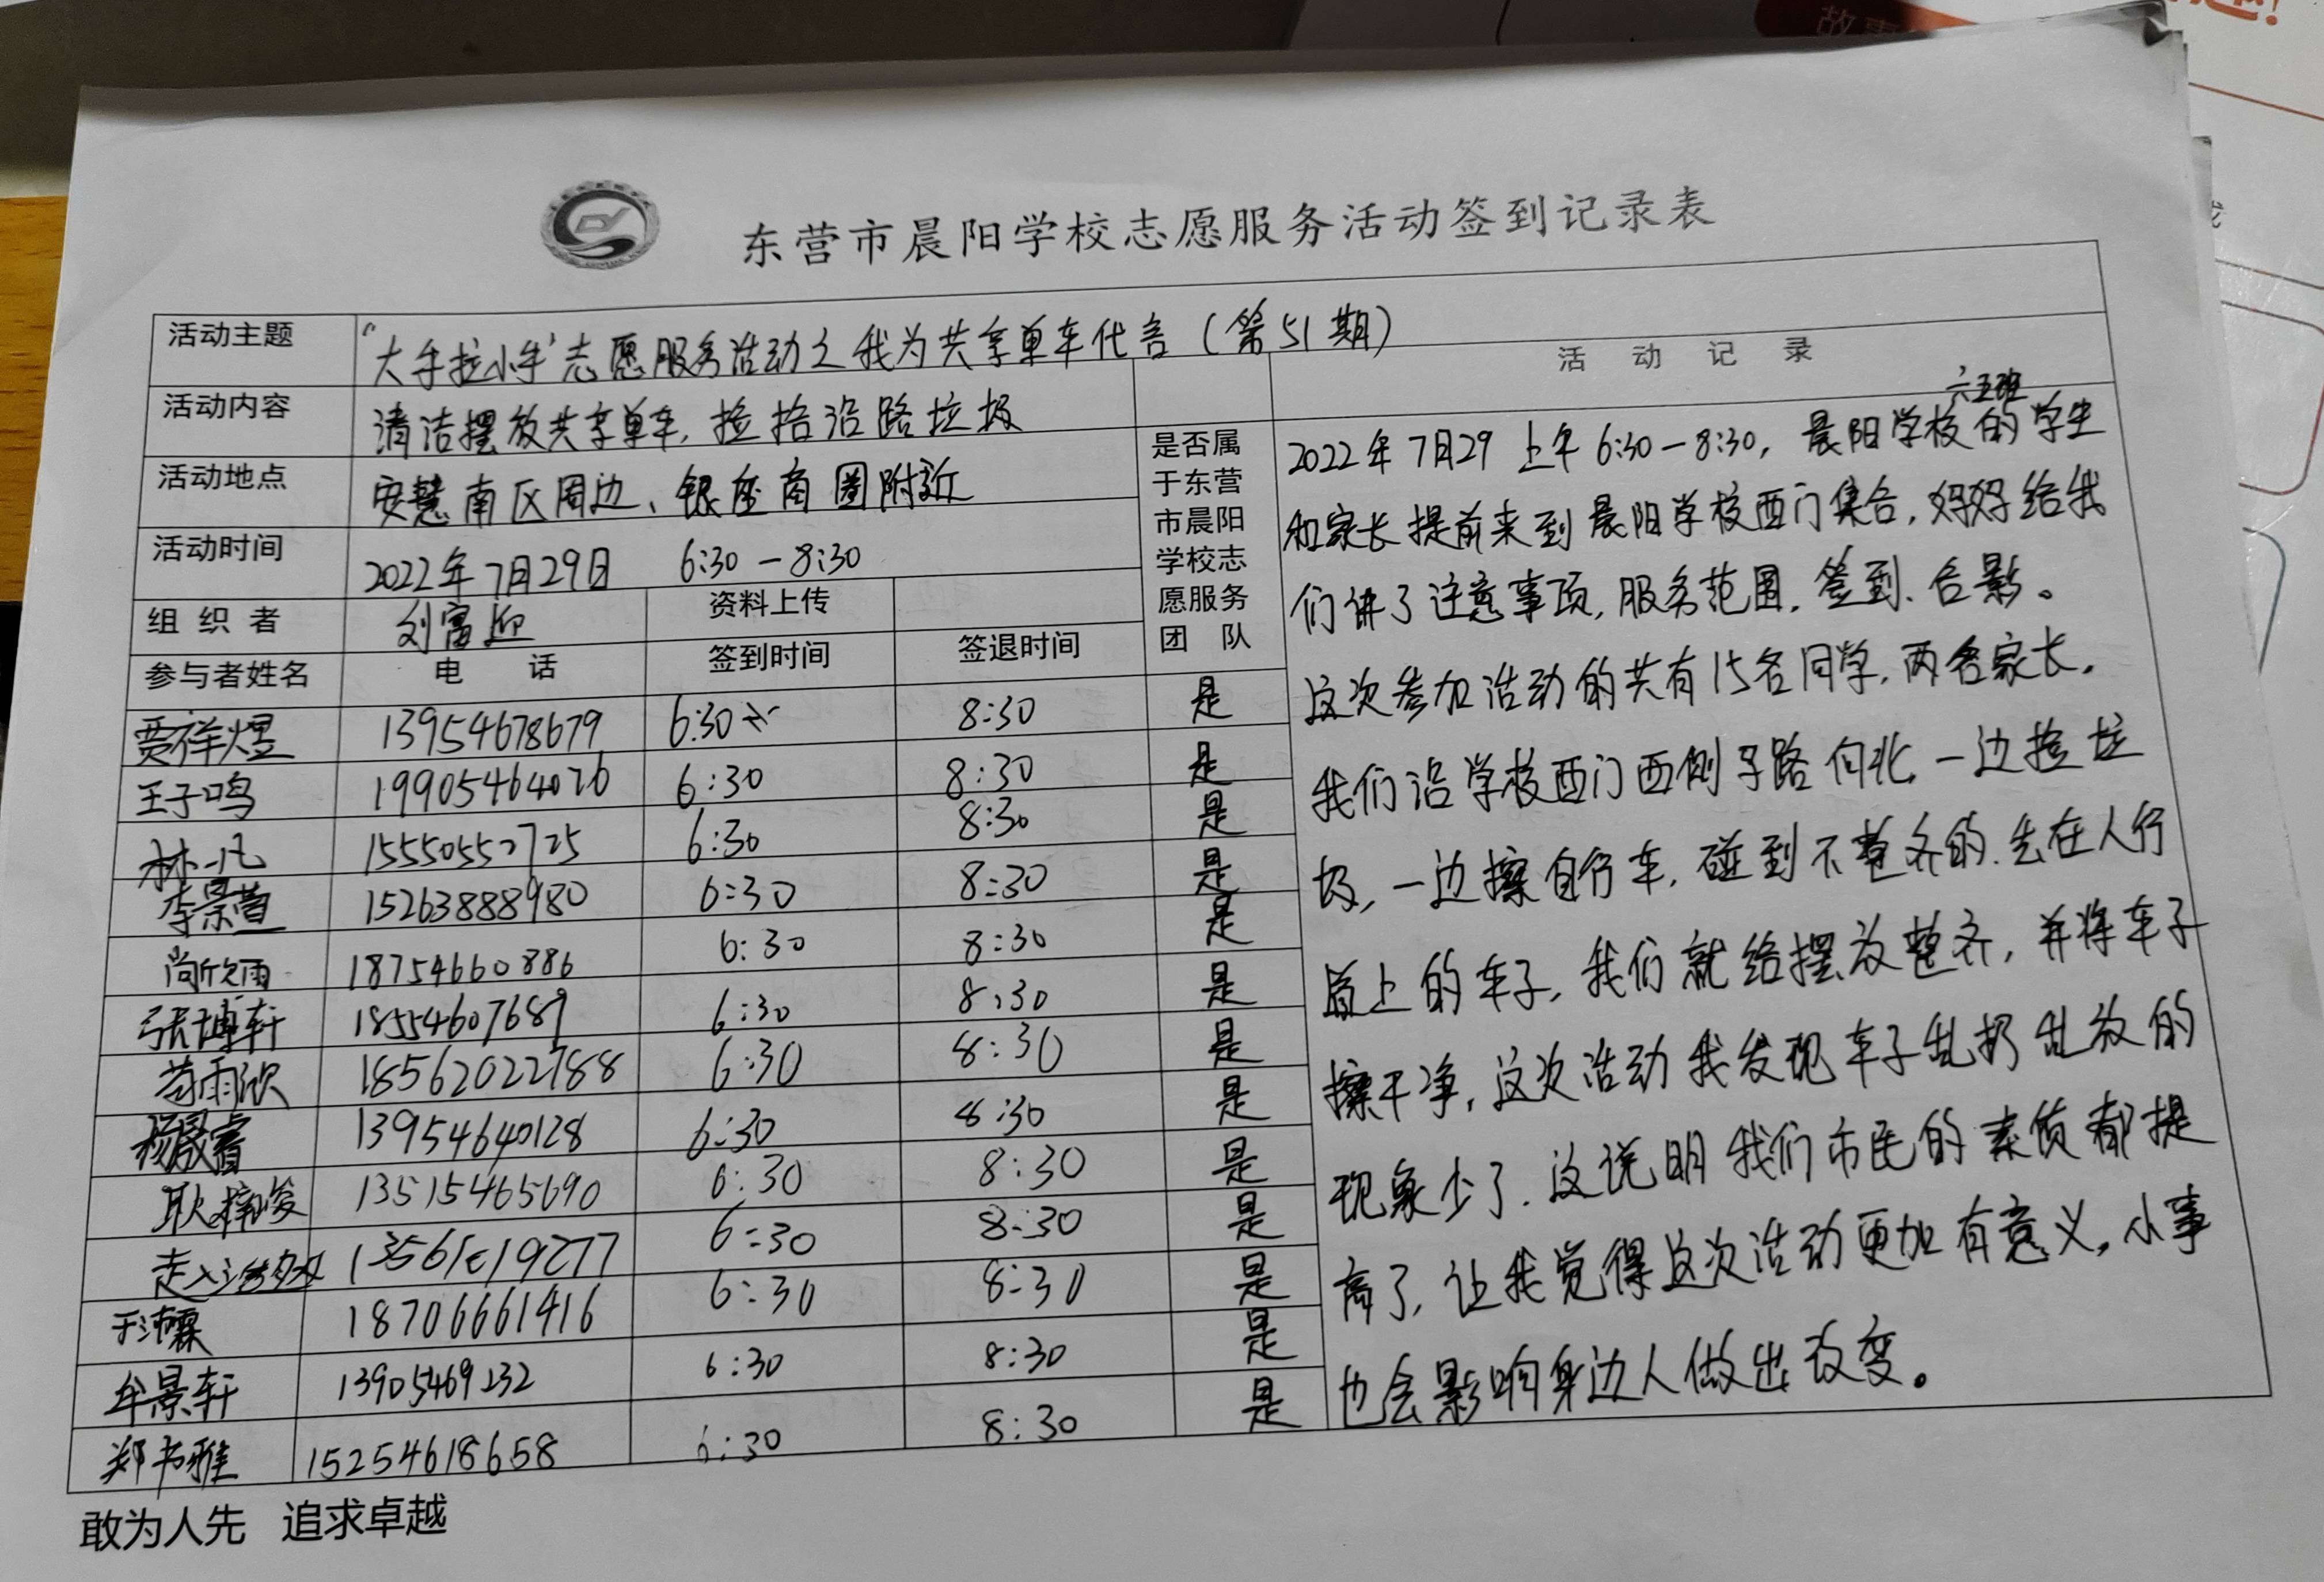 故事
东营市晨阳学校志愿服务活动签到记录表
活动主题 “大手拉小手”志愿服务活动之我为共享单车代言（第51期）
活动内容 清洁摆放共享单车，捡拾沿路垃圾
活动地点 安慧南区周边、银座商圈附近
活动时间 2022年7月29日 6:30－8:30
组织者 刘富迎 资料上传
参与者姓名 电话 签到时间 签退时间
是否属
于东营
市晨阳
学校志
愿服务
团队
贾祥煜 13954678679 6:30 8:30 是
王子鸣 19905464026 6:30 8:30 是
林一凡 15550552725 6:30 8:30 是
李景萱 15263888980 6:30 8:30 是
尚欣雨 18754660886 6:30 8:30 是
张博轩 18554607689 6:30 8:30 是
苟雨欣 18562022788 6:30 8:30 是
杨晟睿 13954640128 6:30 8:30 是
耿梓峻 13515465690 6:30 8:30 是
6:30 8:30 是
于沛霖 18706661416 6:30 8:30 是
牟景轩 13905469232 6:30 8:30 是
郑书雅 15254618658 6:30 8:30 是
活动记录
六五班
2022年7月29 上午6:30－8:30，晨阳学校的学生
和家长提前来到晨阳学校西门集合，妈妈给我
们讲了注意事项，服务范围，签到、合影。
这次参加活动的共有15名同学，两名家长。
我们沿学校西门西侧子路向北，一边捡垃
圾，一边擦自行车，碰到不整齐的、去在人行
道上的车子，我们就给摆放整齐，并将车子
擦干净，这次活动我发现车子乱扔乱放的
现象少了，这说明我们市民的素质都提
高了，让我觉得这次活动更加有意义，小事
也会影响身边人做出改变。
敢为人先 追求卓越